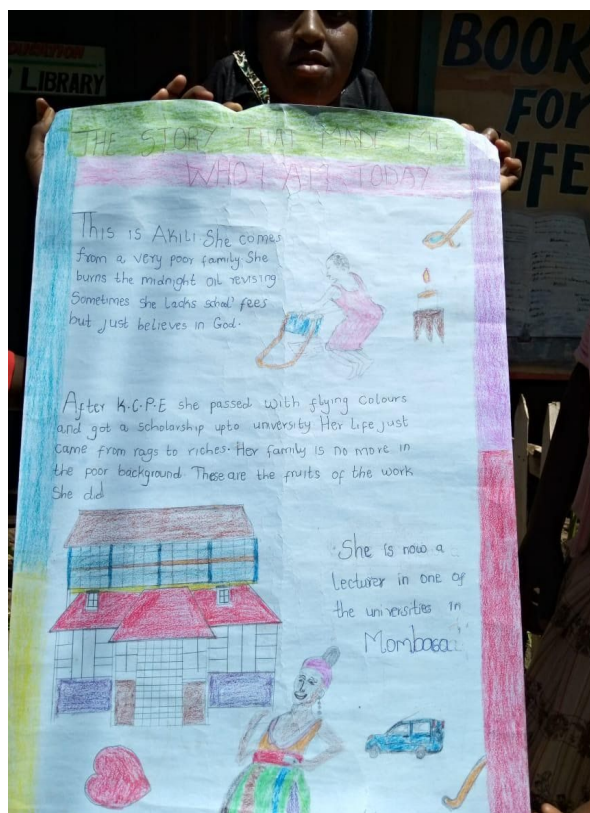 EDUCATION
LIBRARY
BOOK
FOR
LIFE
THE STORY THAT MADE ME
WHO I AM TODAY
This is Akili. She comes
from a very poor family. She
burns the midnight oil revising
Sometimes she lacks school fees
but just believes in God.
After K.C.P.E she passed with flying colours
and got a scholarship upto unversity Her Life just
came from rags to riches. Her family is no more in
the poor background. These are the fruits of the work
She did
She is now a
Lecturer in one of
the universities in
Mombasa